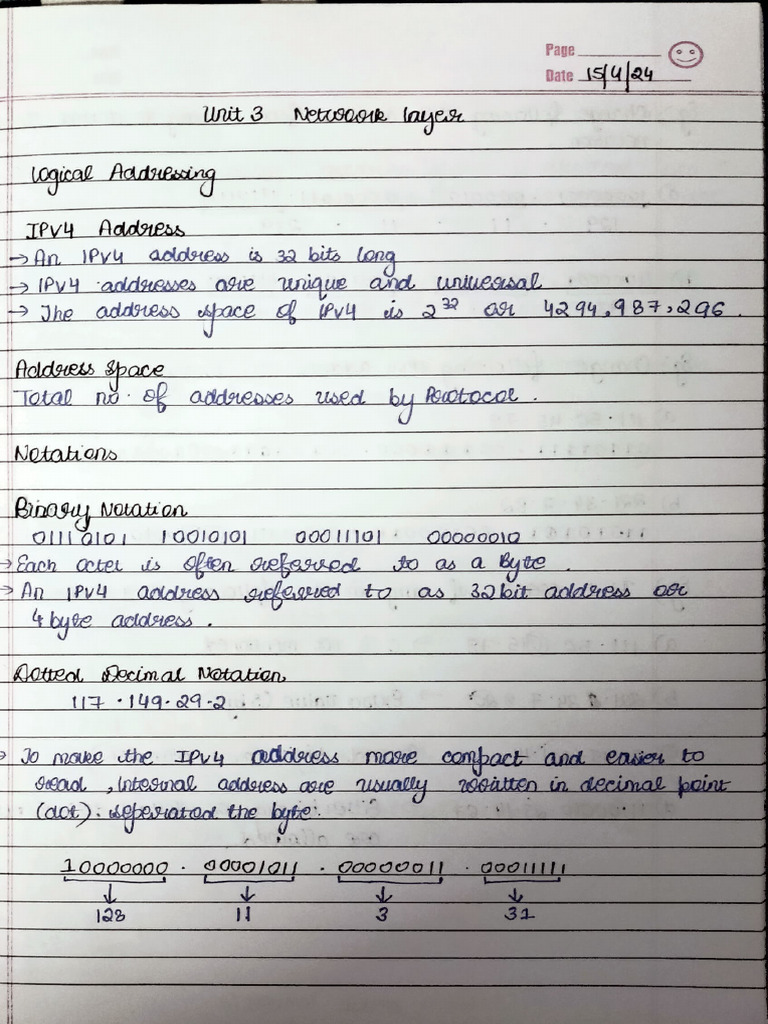 Page
Date 15/4/24
Unit 3 Network layer
Logical Addressing
IPV4 Address
→ An IPV4 address is 32 bits long
→ IPV4 addresses are unique and universal
→ The address space of IPV4 is 2³² or 4294,987,296.
Address Space
Total no. of addresses used by Protocol.
Notations
Binary Notation
01110101 10010101 00011101 00000010
→ Each octet is often referred to as a Byte.
→ An IPV4 address referred to as 32 bit address or
4 byte address.
Dotted Decimal Notation
117 . 149 . 29 . 2
→ To make the IPV4 address more compact and easier to
read, Internal address are usually written in decimal point
(dot). seperated the byte.
10000000 . 00001011 . 00000011 . 00011111
↓ ↓ ↓ ↓
128 11 3 31